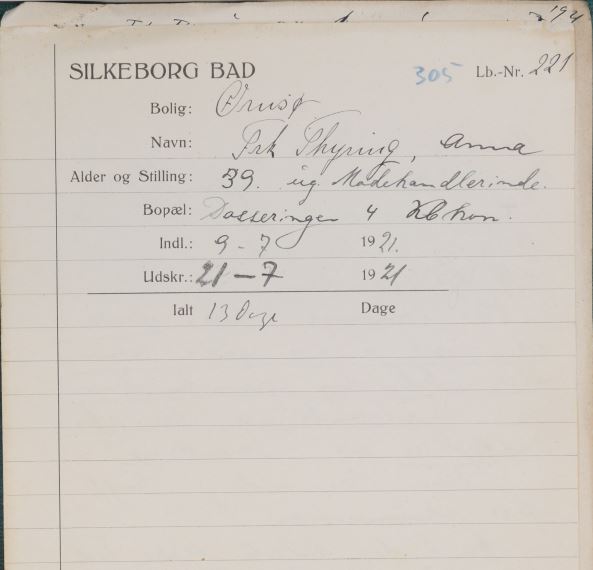 194
SILKEBORG BAD 305 Lb.-Nr. 221
Bolig: Ørnsø
Navn: Frk Thyring, Anna
Alder og Stilling: 39. ug. Modehandlerinde.
Bopæl: Dosseringen 4 Kbhvn.
Indl.: 9 - 7 1921.
Udskr.: 21 - 7 1921
Ialt 13 Dage Dage